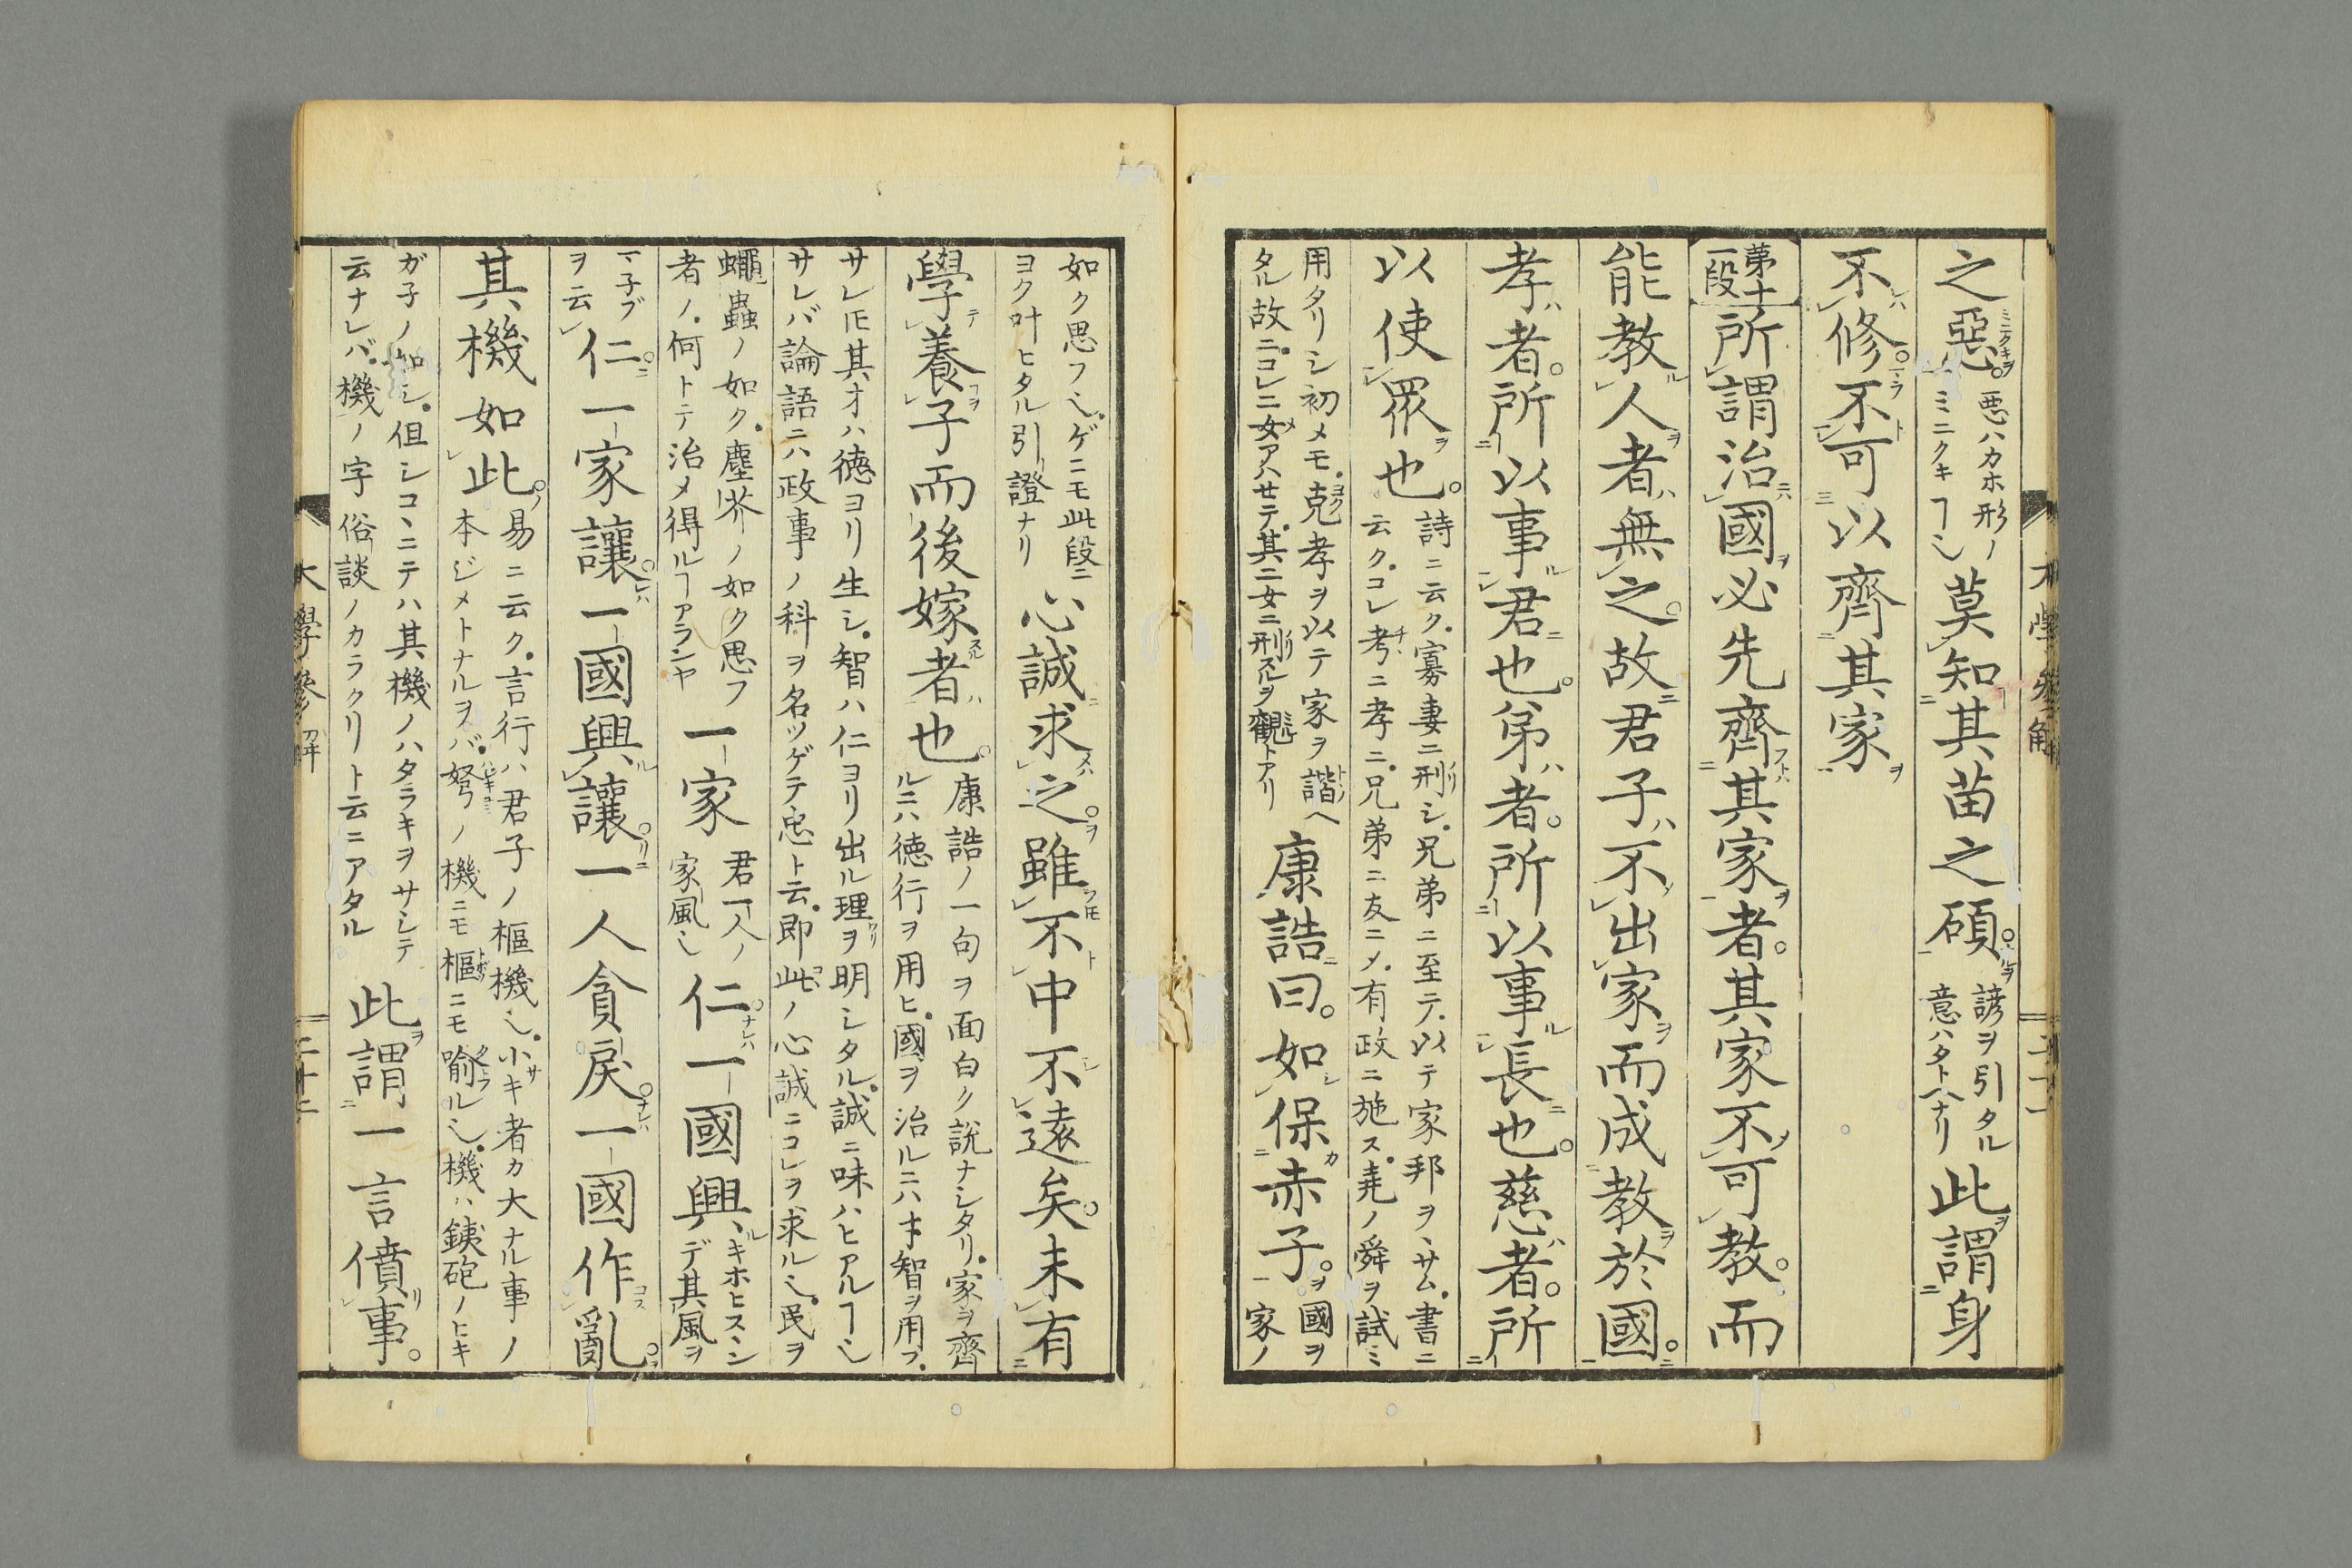 之惡。惡ハカホ形ノ
ミニクキヿ也莫知其苗之碩。諺ヲ引タル
意ハタトヘナリ此謂身
不修。不可以齊其家
第十
一段所謂治國必先齊其家者。其家不可教。而
能教人者無之。故君子不出家而成教於國。
孝者。所以事君也。弟者。所以事長也。慈者。所
以使眾也。詩ニ云ク。寡妻ニ刑シ。兄弟ニ至テ。以テ家邦ヲヽサム。書ニ
云ク。コレ考ニ孝ニ。兄弟ニ友ニメ。有政ニ施ス。堯ノ舜ヲ試ミ
用タリシ初メモ。克孝ヲ以テ家ヲ諧ヘ
タル故ニ。コレニ女アハセテ。其二女ニ刑スルヲ觀トアリ康誥曰。如保赤子。國ヲ
家ノ
如ク思フ也。ゲニモ此段ニ
ヨク叶ヒタル引證ナリ心誠求之。雖不中不遠矣。未有
學養子而後嫁者也。康誥ノ一句ヲ面白ク說ナシタリ。家ヲ齊
ルニハ徳行ヲ用ヒ。國ヲ治ルニハ才智ヲ用フ。
サレ𪜈其才ハ徳ヨリ生シ。智ハ仁ヨリ出ル理ヲ明シタル。誠ニ味ハヒアルヿ也
サレバ論語ニハ政事ノ科ヲ名ツゲテ忠ト云。即此ノ心誠ニコレヲ求ル也。民ヲ
蠅蟲ノ如ク。塵芥ノ如ク思フ
者ノ。何トテ治メ得ルヿアランヤ一家君一人ノ
家風也仁。一國興、キホヒスン
デ其風ヲ
子ブ
ヲ云仁。一家讓。一國興讓。一人貪戾。一國作亂。
其機如此。易ニ云ク。言行ハ君子ノ樞機也。小キ者カ大ナル事ノ
本ジメトナルヲバ。弩ノ機ニモ樞ニモ喻ル也。機ハ銕砲ノヒキ
ガ子ノ如シ。但シコヽニテハ其機ノハタラキヲサシテ
云ナレバ。機ノ字俗談ノカラクリト云ニアタル此謂一言僨事。
大學參解
二十二